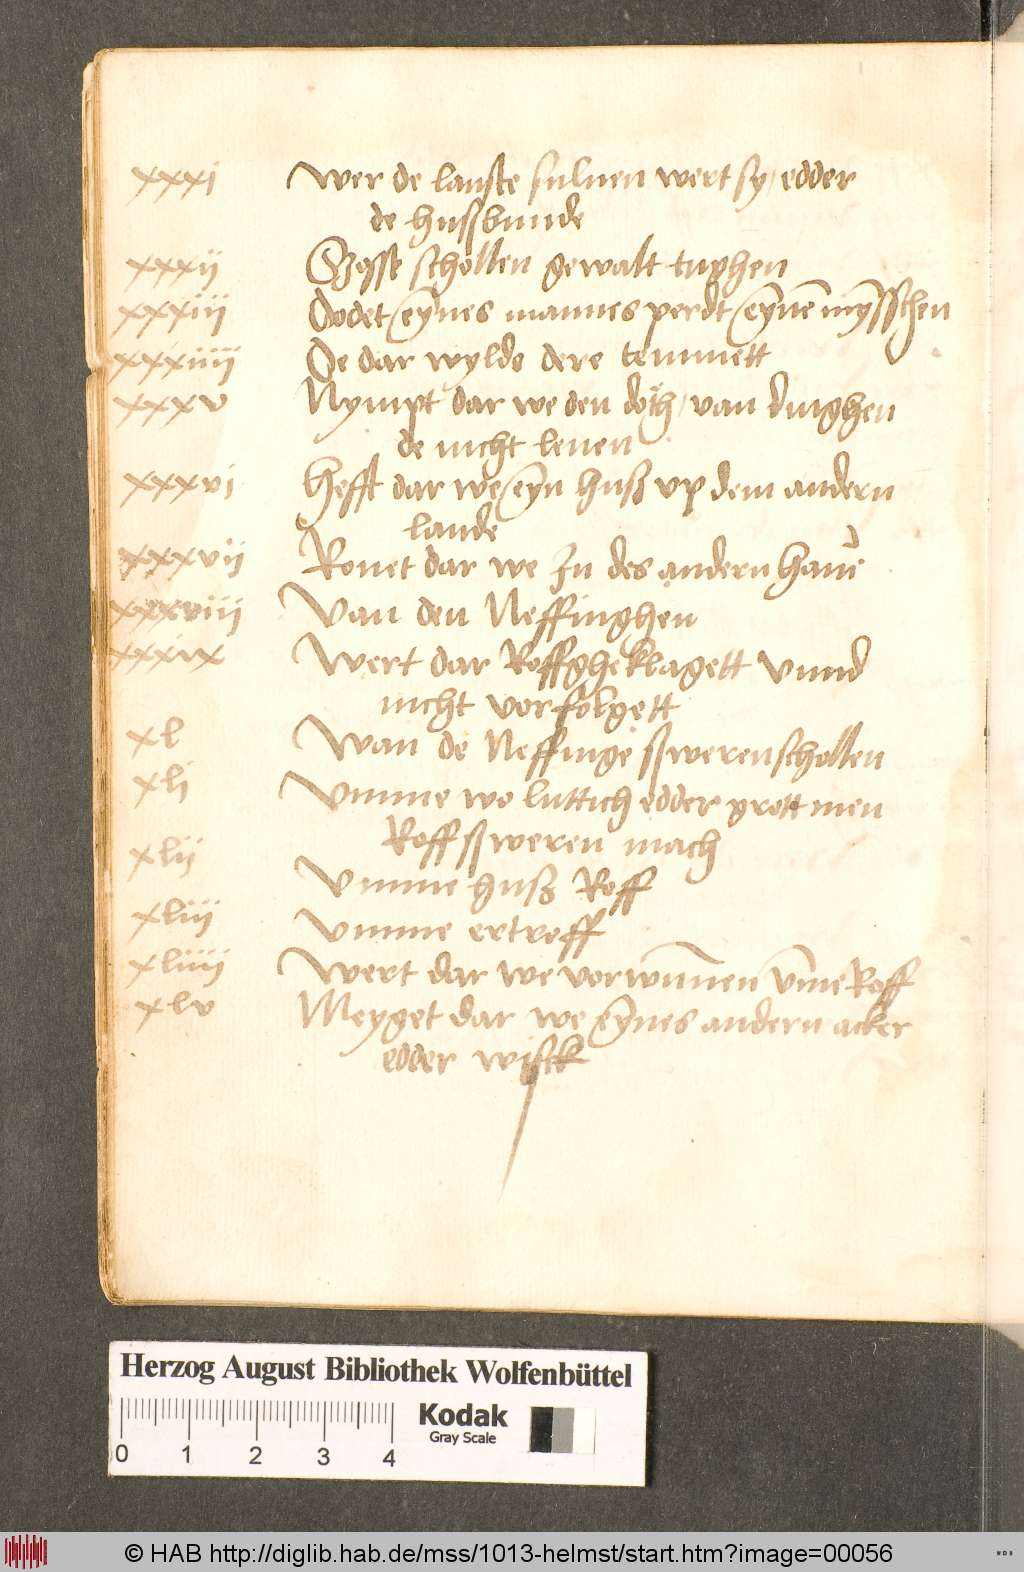 xxxi wer de lanste suluen wert sy / edder
de hussbunde
xxxii Gosse schollen gewalt tughen
xxxiii Dodet eynes mannes perdt eynē mysschen
xxxiiii De dar wylde dere temmett
xxxv Nympt dar we den doth / van dinghen
de nicht leuen
xxxvi Hefft dar we eyn huß vp dem andern
lande
xxxvii Rouet dar we In des andern haue
xxxviii Van den Neffinghen
xxxix Wert dar Roff gheklagett vnnd
nicht vorfolgett
xl Wan de Neffinge sweren schollen
xli Vmme wo luttich edder grott men
Roff sweren mach
xlii Vmme huß Roff
xliii Vmme ertroff
xliiii Wert dar we vorwunnen vm̄e Roff
xlv Meyget dar we eynes andern acker
edder wisck
Herzog August Bibliothek Wolfenbüttel
0 1 2 3 4
Kodak
Gray Scale
© HAB http://diglib.hab.de/mss/1013-helmst/start.htm?image=00056